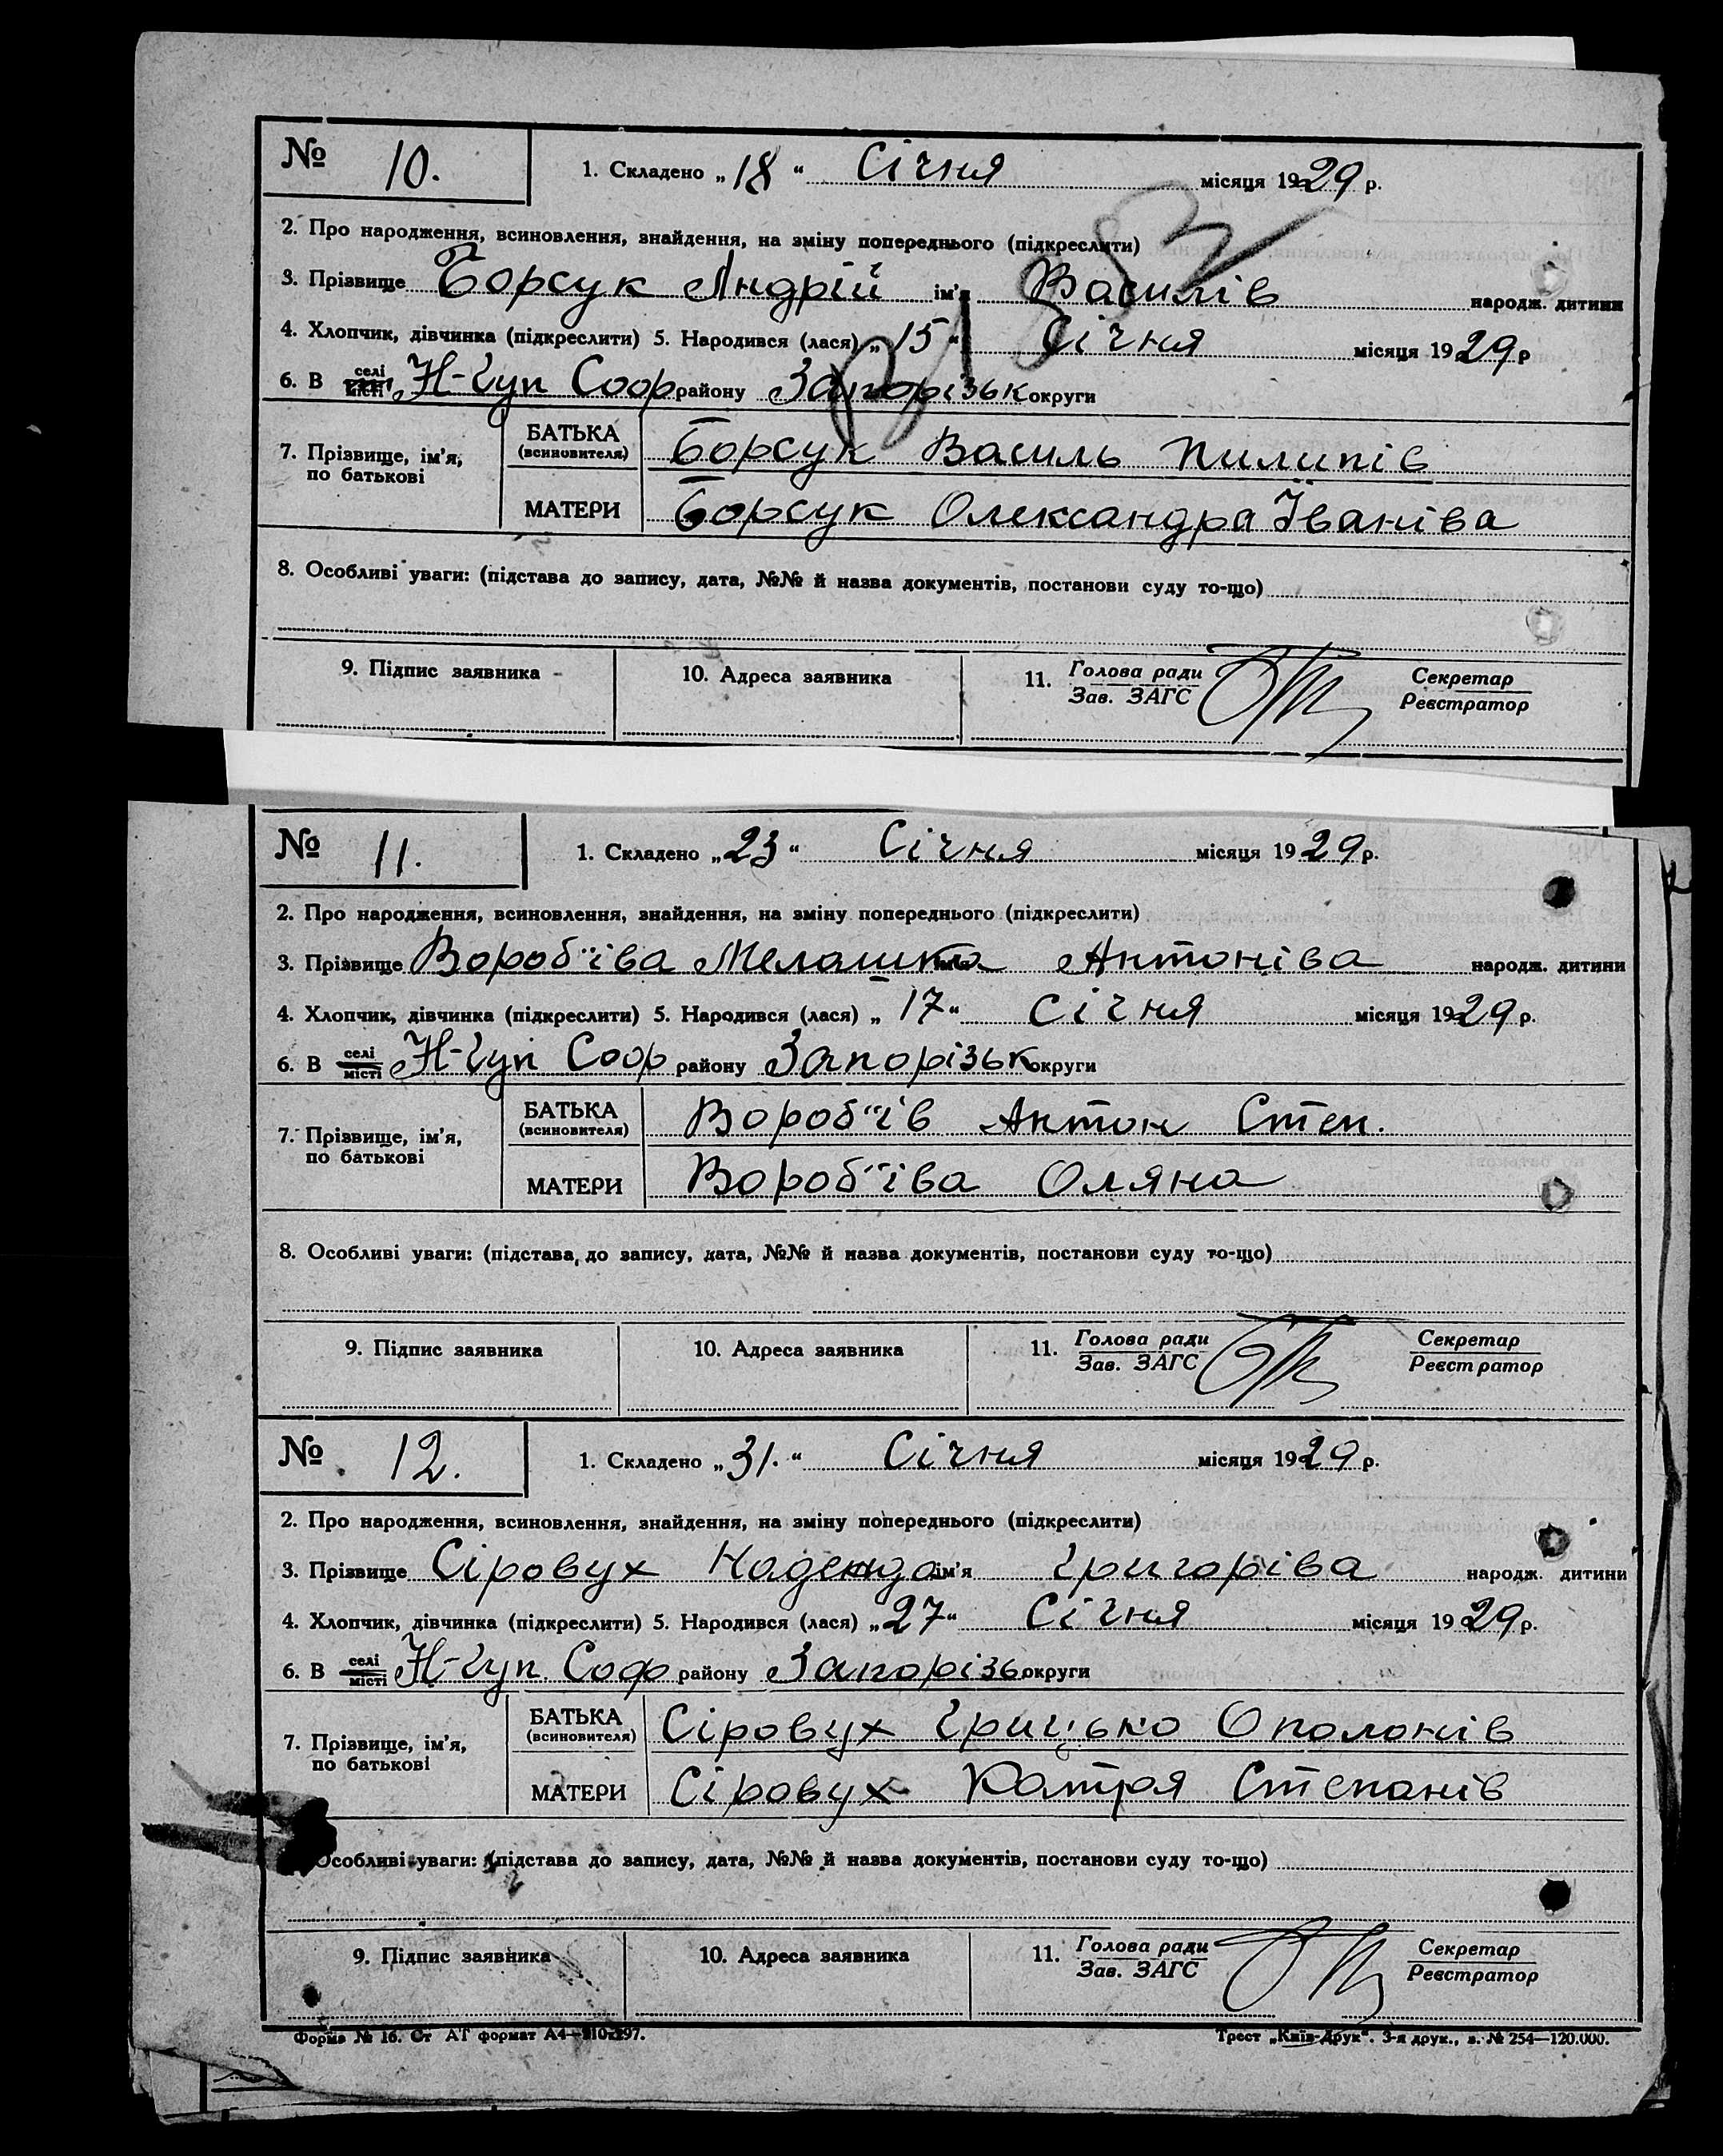 № 10. 1. Складено „18“ Січня місяця 1929 р.
2. Про народження, всиновлення, знайдення, на зміну попереднього (підкреслити)
3. Прізвище Борсук Андрій ім'я Василів народж. дитини
4. Хлопчик, дівчинка (підкреслити) 5. Народився (лася) „15“ Січня місяця 1929 р
6. В селі місті Н-Гуп Соф району Запорізьк округи
7. Прізвище, ім'я, по батькові
БАТЬКА (всиновителя) Борсук Василь Пилипів
МАТЕРИ Борсук Олександра Іванівa
8. Особливі уваги: (підстава до запису, дата, №№ й назва документів, постанови суду то-що)
9. Підпис заявника 10. Адреса заявника 11. Голова ради Секретар
Зав. ЗАГС Реєстратор
№ 11. 1. Складено „23“ Січня місяця 1929 р.
2. Про народження, всиновлення, знайдення, на зміну попереднього (підкреслити)
3. Прізвище Вороб'їва Мелашка Антоніва народж. дитини
4. Хлопчик, дівчинка (підкреслити) 5. Народився (лася) „17“ Січня місяця 1929 р.
6. В селі місті Н-Гуп Соф району Запорізьк округи
7. Прізвище, ім'я, по батькові
БАТЬКА (всиновителя) Вороб'їв Антон Степ.
МАТЕРИ Вороб'їва Оляна
8. Особливі уваги: (підстава до запису, дата, №№ й назва документів, постанови суду то-що)
9. Підпис заявника 10. Адреса заявника 11. Голова ради Секретар
Зав. ЗАГС Реєстратор
№ 12. 1. Складено „31.“ Січня місяця 1929 р.
2. Про народження, всиновлення, знайдення, на зміну попереднього (підкреслити)
3. Прізвище Сіровух Надежда ім'я Григоріва народж. дитини
4. Хлопчик, дівчинка (підкреслити) 5. Народився (лася) „27“ Січня місяця 1929 р.
6. В селі місті Н-Гуп. Соф району Запорізь округи
7. Прізвище, ім'я, по батькові
БАТЬКА (всиновителя) Сіровух Грицько Ополонів
МАТЕРИ Сіровух Катря Степанів
Особливі уваги: (підстава до запису, дата, №№ й назва документів, постанови суду то-що)
9. Підпис заявника 10. Адреса заявника 11. Голова ради Секретар
Зав. ЗАГС Реєстратор
Форма № 16. Ст АТ формат А4—210x297. Трест „Київ-Друк“. 3-я друк., з. № 254—120.000.